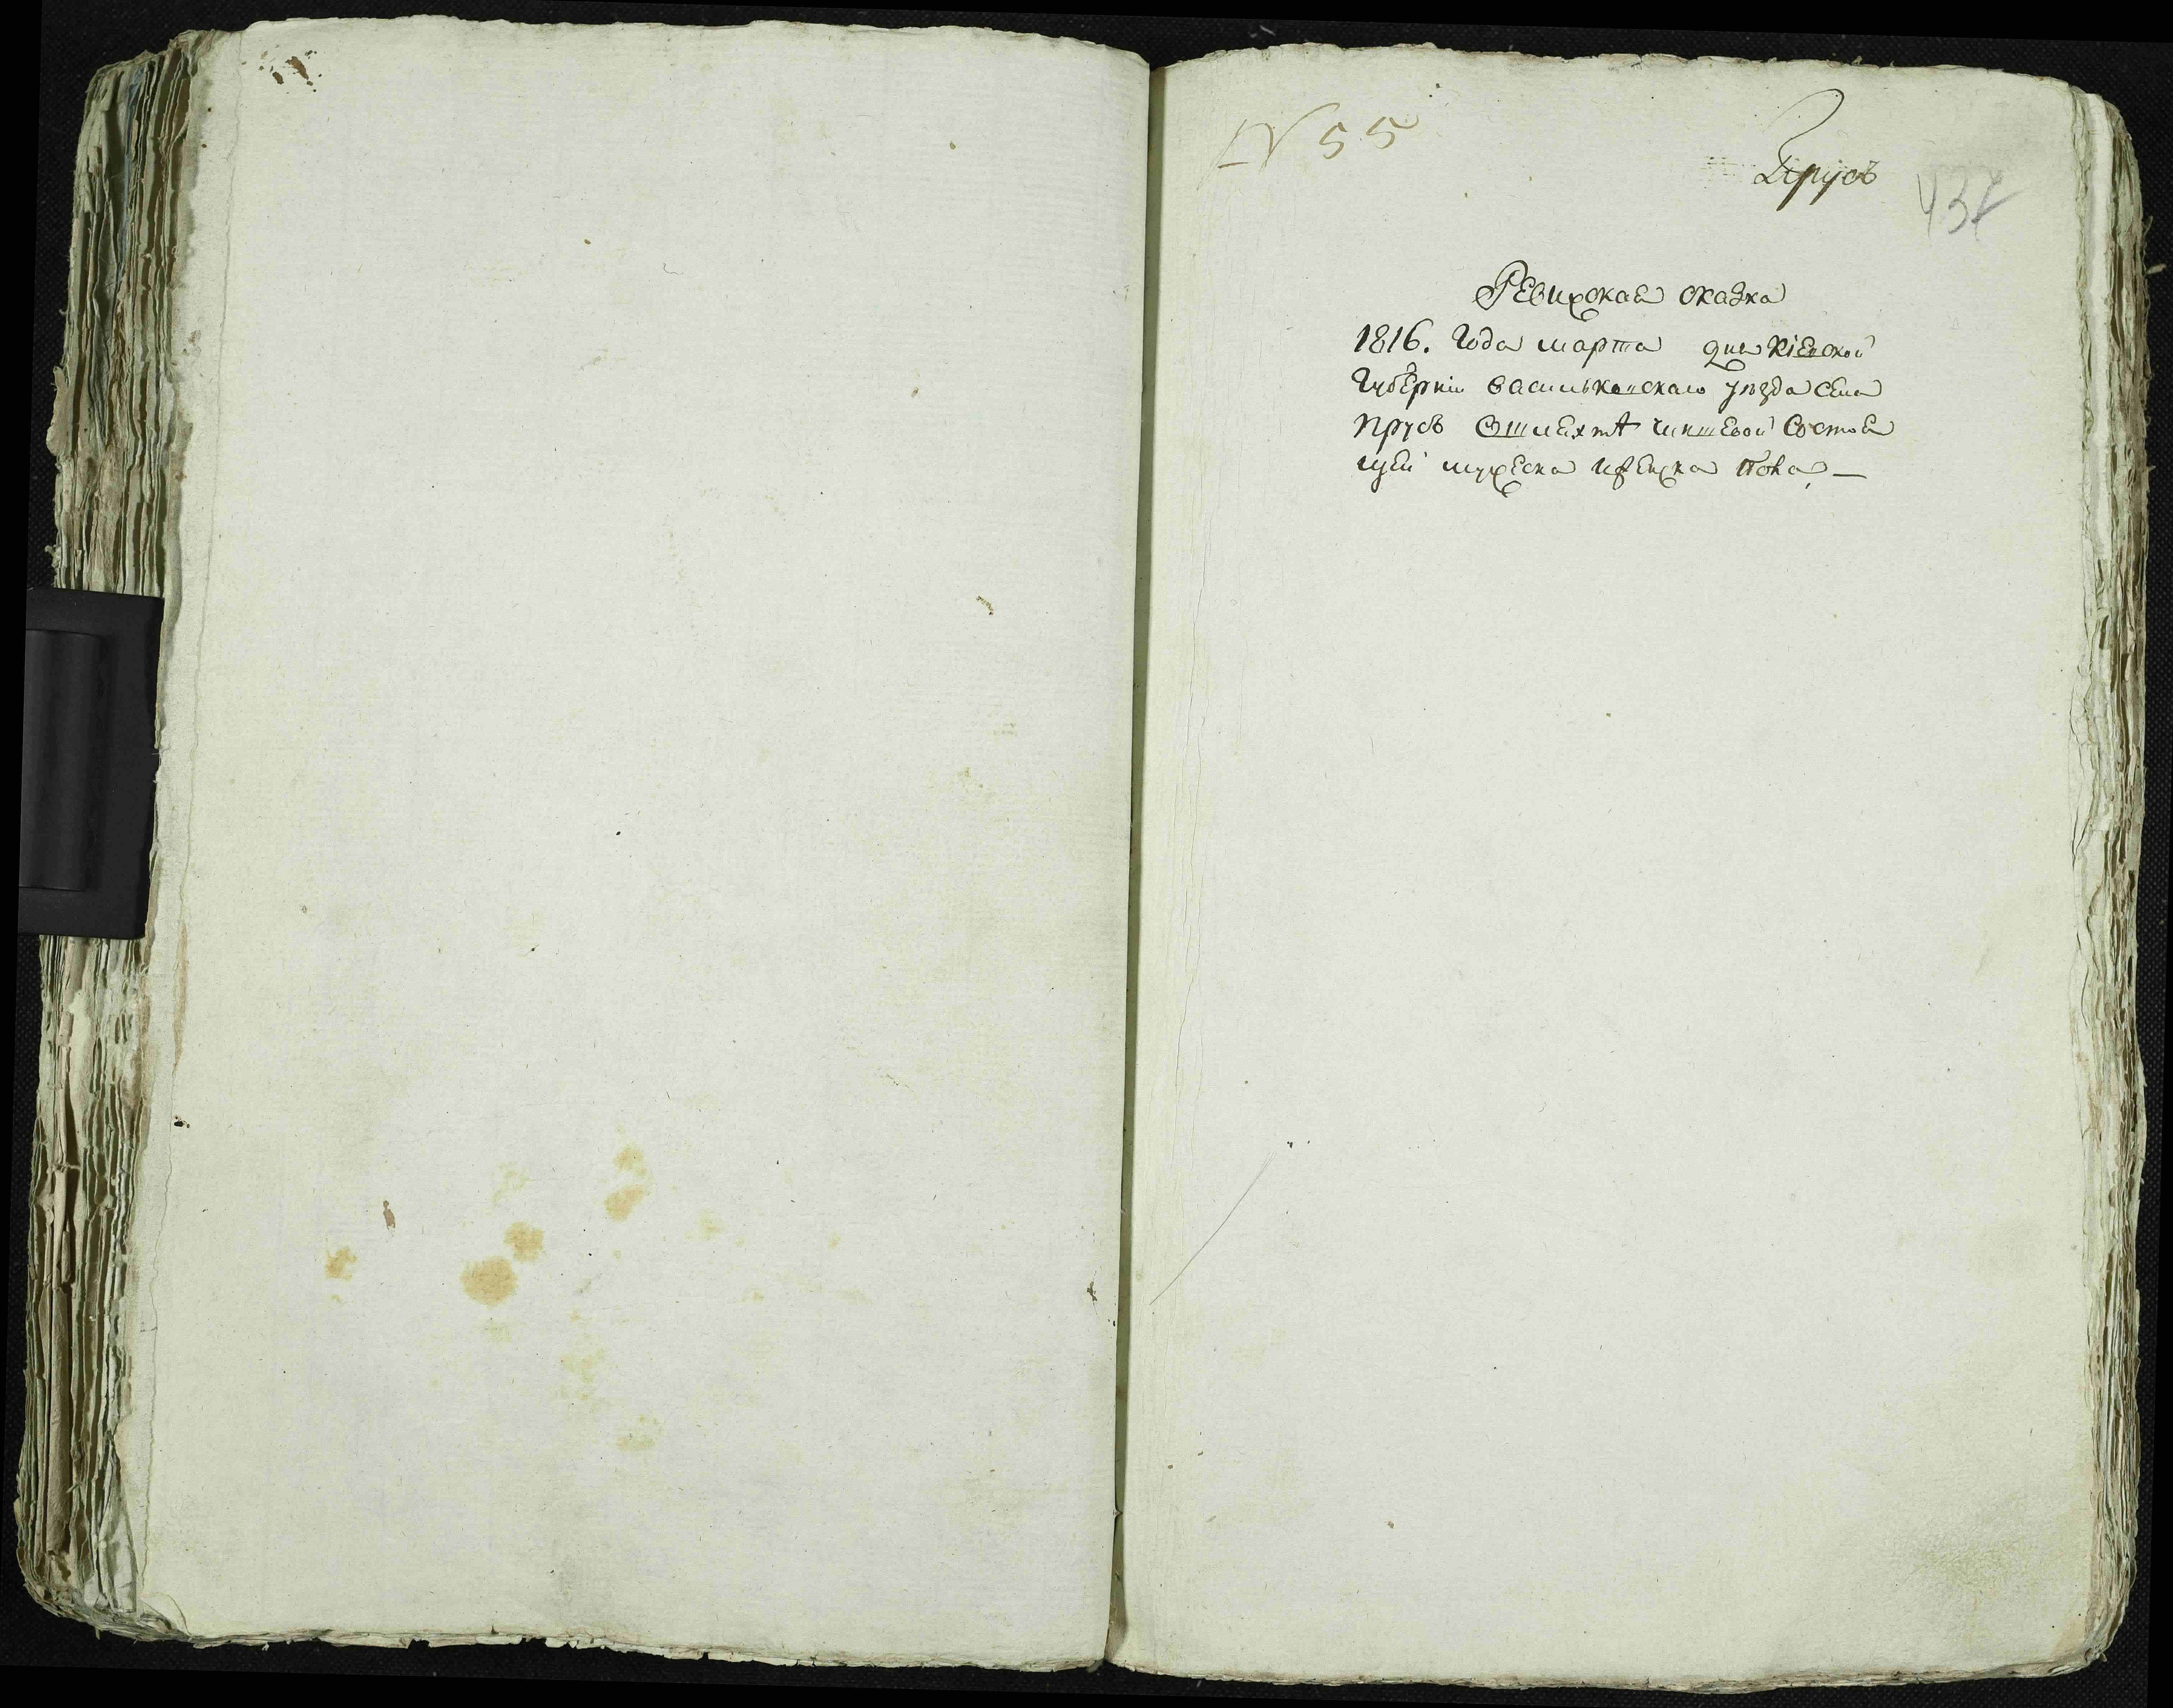 N 55
Прусъ
437
Ревижская сказка
1816. Года марта дня Кіевской
Губерніи Васильковскаго уѣзда Села
Прусъ Ошляхтѣ чиншевой Состоя
щей мужеска иженска Пола, —